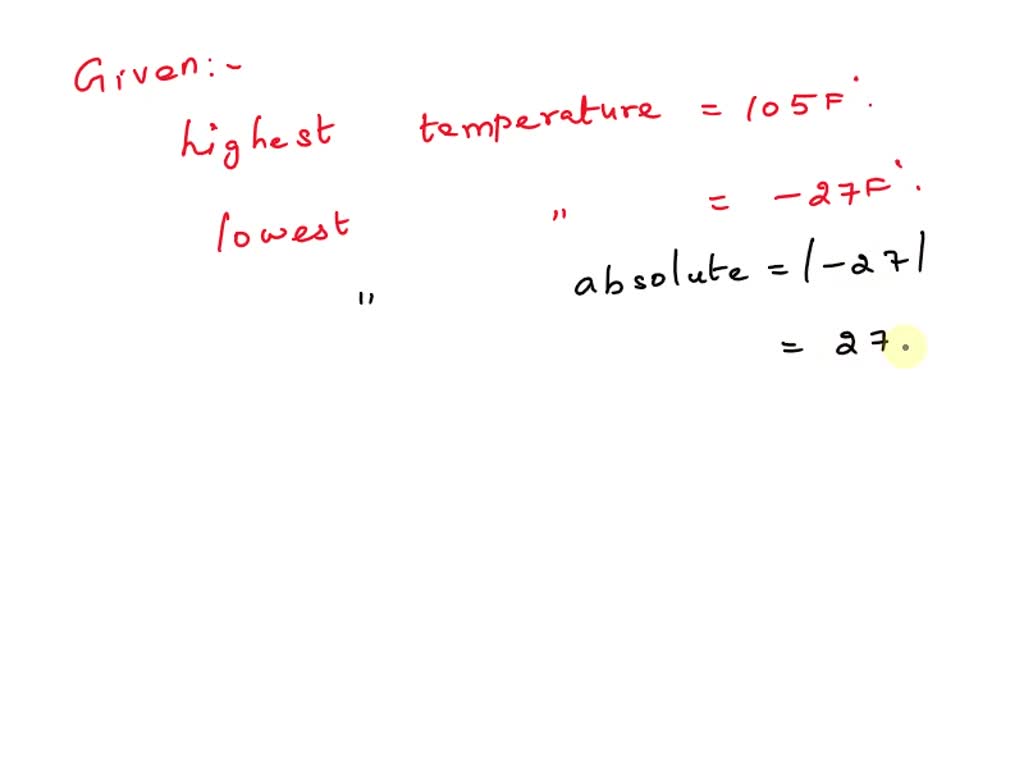 Given:-
highest temperature = 105F°.
lowest " = -27F°.
" absolute = |-27|
= 27.